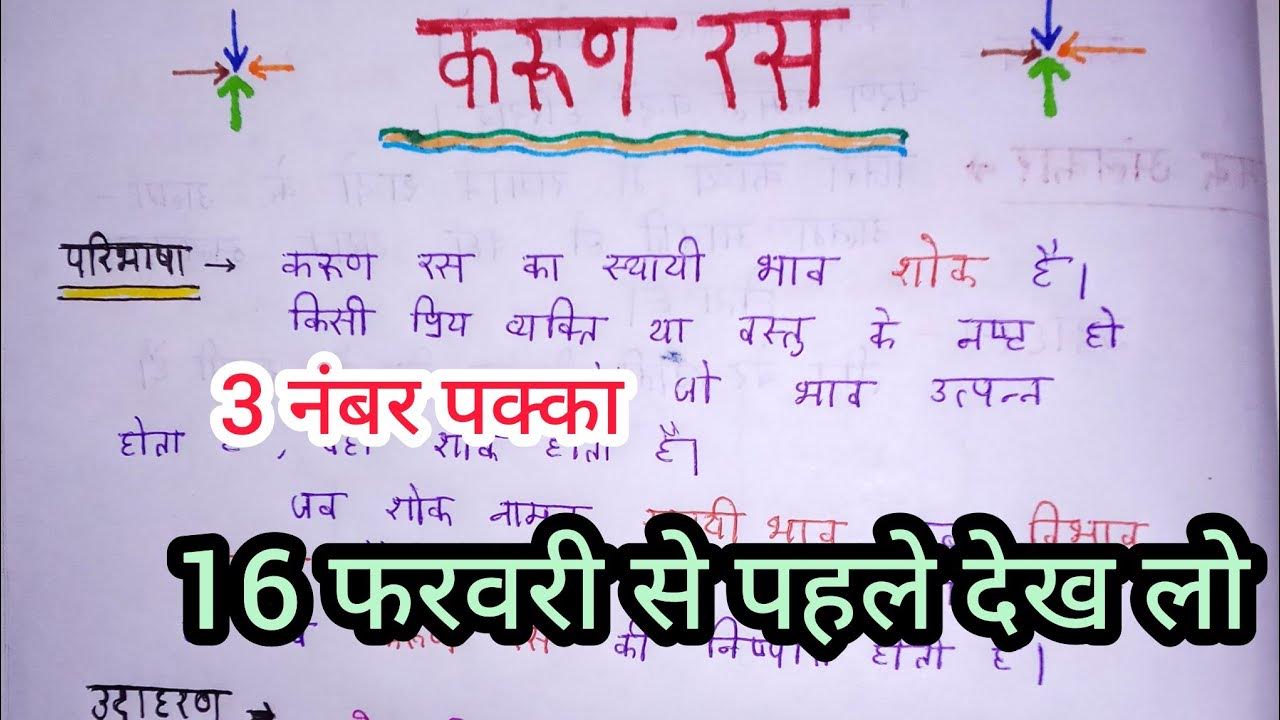 करूण रस
परिभाषा → करूण रस का स्थायी भाव शोक है।
किसी प्रिय व्यक्ति या वस्तु के नष्ट हो
जो भाव उत्पन्न
3 नंबर पक्का
होता है, वहाँ शोक होता है।
जब शोक नामक स्थायी भाव विभाव
16 फरवरी से पहले देख लो
करूण रस की निष्पत्ति होती है।
उदाहरण →